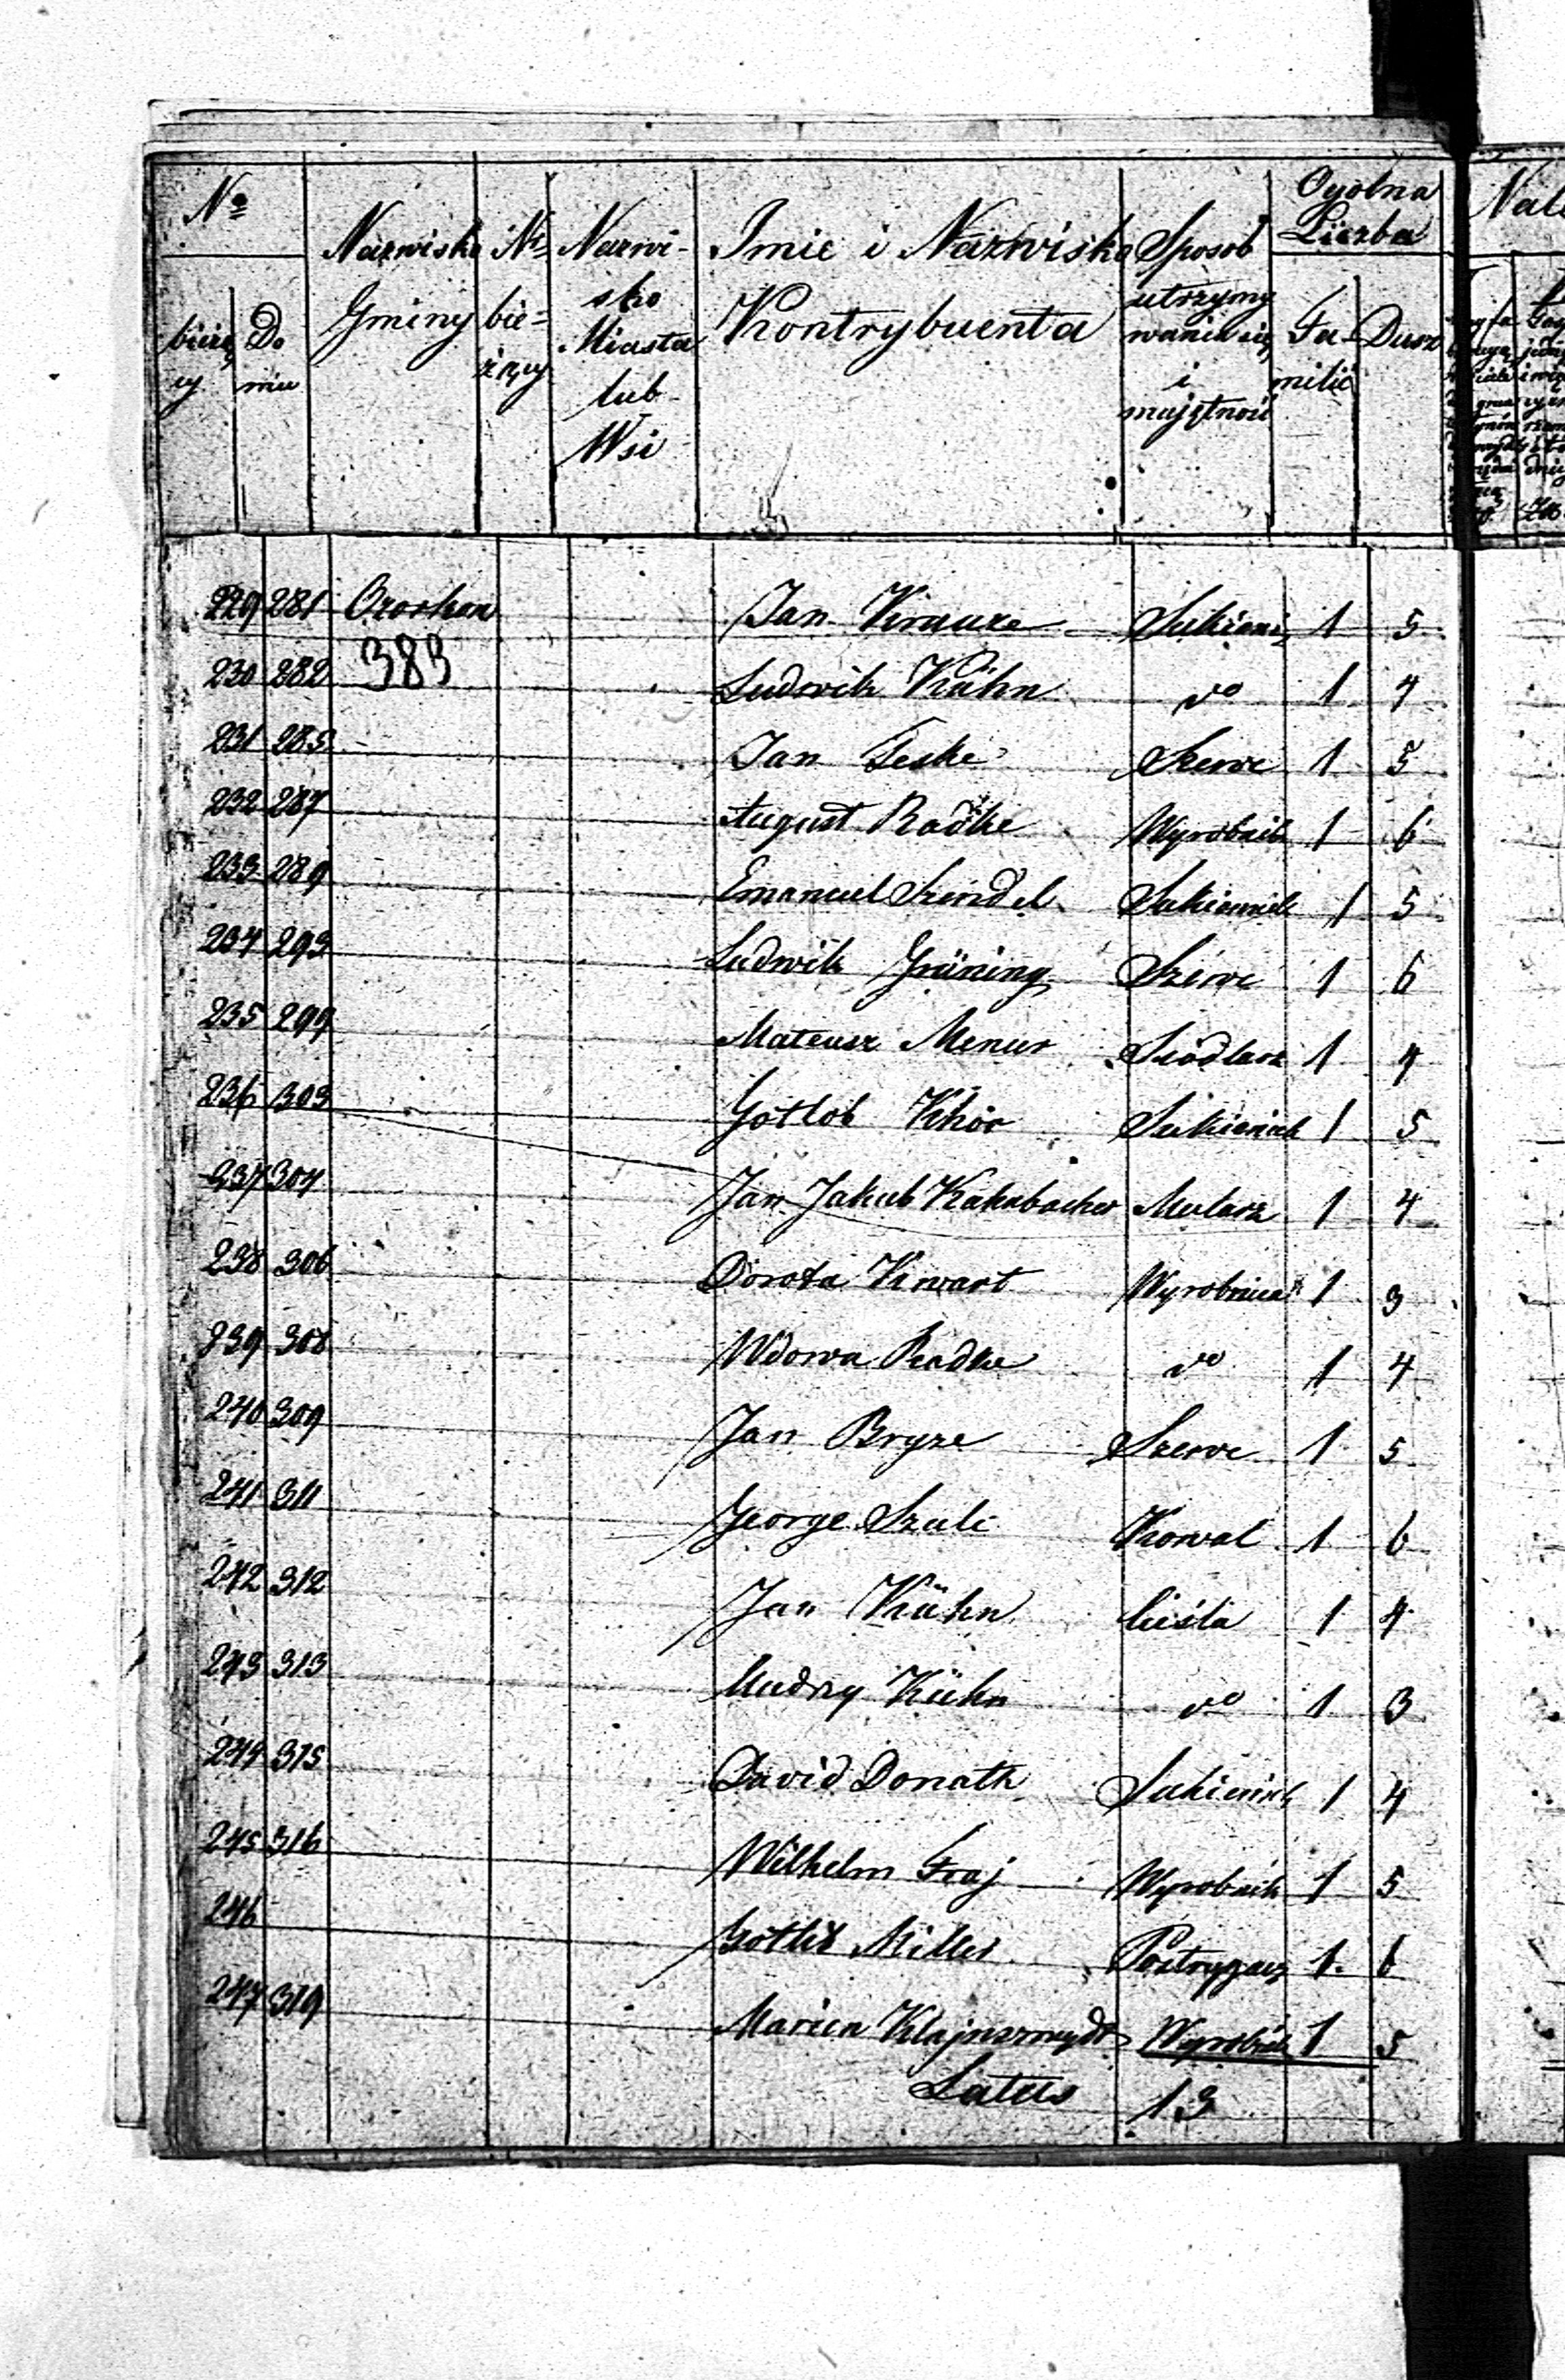 No
bieżący
Domu
Nazwisko Gminy
Nr bieżący
Nazwisko Miasta lub Wsi
Imie i Nazwisko Kontrybuenta
Sposob utrzymywania się i majętność
Ogolna Liczba
Familii
Dusz
229 281 Ozorkow Jan Krauze Sukienni 1 5
383
230 282 Ludwik Kühn do 1 4
231 285 Jan Teske Szewc 1 5
232 287 August Radke Wyrobnik 1 6
233 289 Emanuel Szindel Sukiennik 1 5
234 293 Ludwik Grüning Szewc 1 6
235 299 Mateusz Menur Siodlarz 1 4
236 303 Gotlob Khör Sukiennik 1 5
237 304 Jan Jakub Kaknbacher Mularz 1 4
238 306 Dorota Kwart Wyrobnica 1 3
239 308 Wdowa Radke do 1 4
240 309 Jan Bryze Szewc 1 5
241 311 George Szulc Kowal 1 6
242 312 Jan Kühn Cieśla 1 4
243 313 Kühn do 1 3
244 315 David Donath Sukiennik 1 4
245 316 Wilhelm Fraj Wyrobnik 1 5
246 Gottlib Miller Postrzygacz 1 6
247 319 Klajnszmydt Wyrobnik 1 5
Latus 13